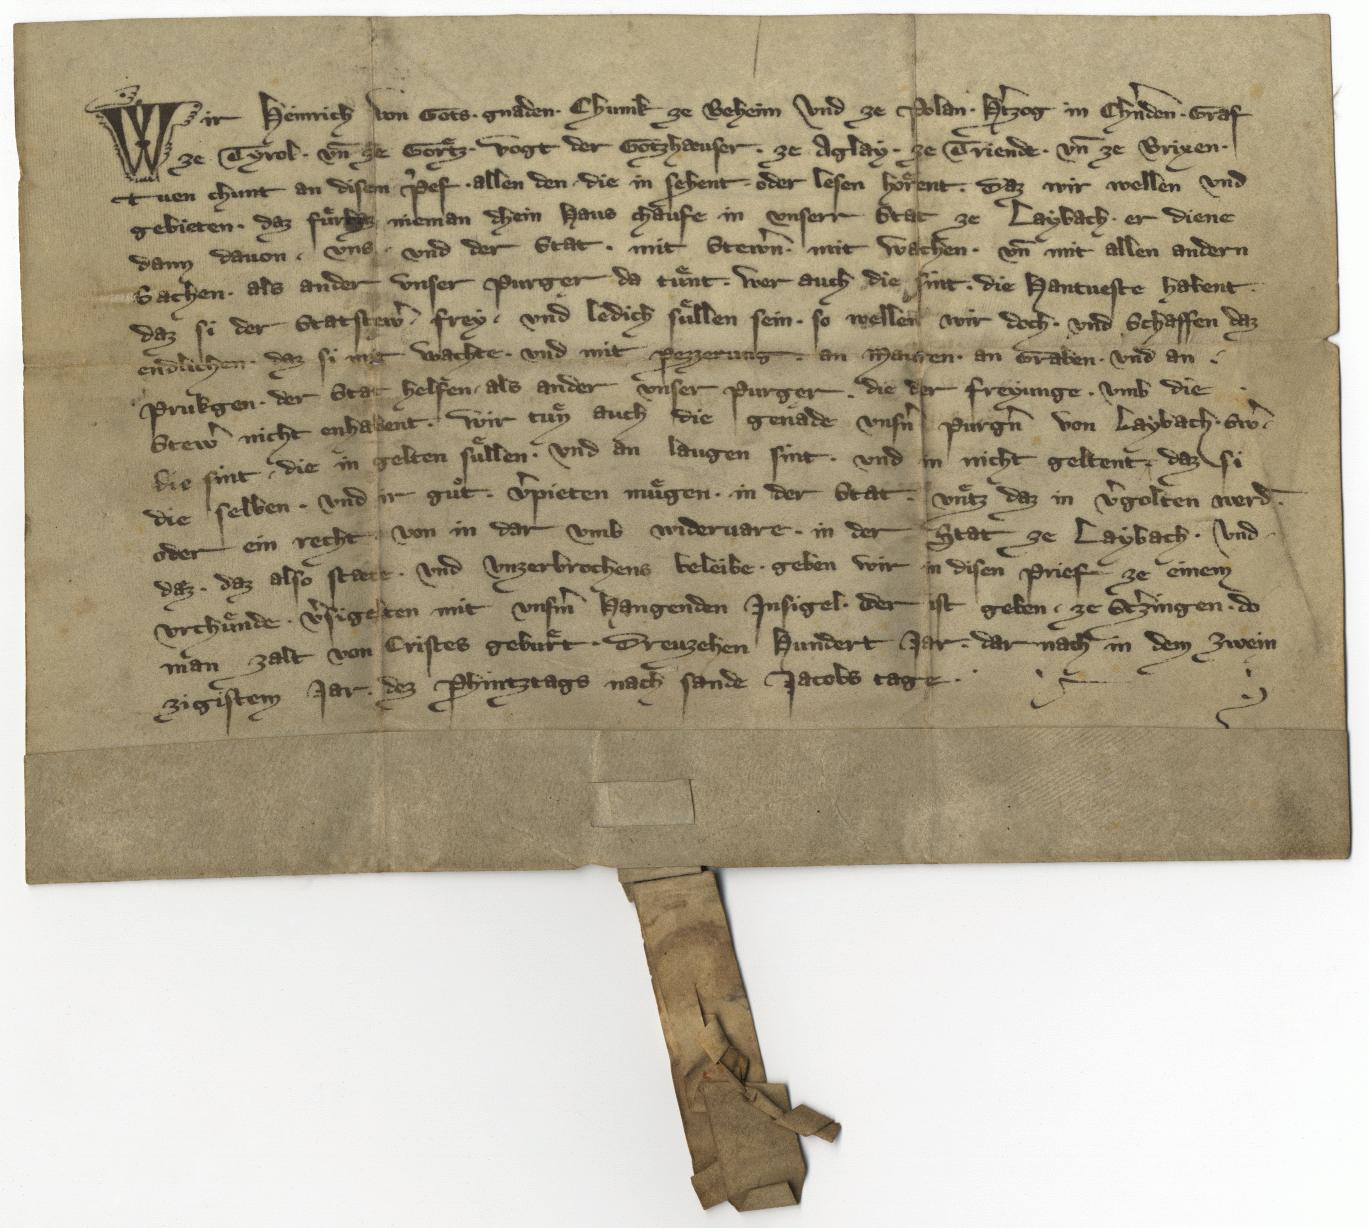 Wir Heinrich von Gots · gnaden · Chunik ze Beheim Vnd ze Polan · Hꝛ̄zog in Chꝛ̄nden · Graf
ze Tyrol · vn̄ ze Goꝛͤtz · vogt der Gotzhaeuser · ze Aglay · ze Triende · vn̄ ze Brixen ·
Tuen chunt an disem p̄ef · allen den · die in sehent · oder lesen hoͤrent · Daz wir wellen vnd
gebieten · daz nieman dhein Haus chaufe in vnserr Stat ze Laybach · er diene
dann dauon · vns · vnd der Stat · mit Stewr̄ · mit wachen · vn̄ mit allen andern
Sachen · als ander vnser purger da tuͤnt · wer auch die sint · die Hantueste habent ·
daz si der Statstewr̄ · frey · vnd ledich suͤllen sein · so wellen wir doch · vnd Schaffen daz
endlichen · daz si mit wachte · vnd mit pezzerung · an Mauren · an Graben · vnd an ·
prukgen · der Stat helfen · als ander vnser purger · die der freyunge · vmb die ·
Stewr̄ nicht enhabent · wir tuͤn auch die genade vnsn̄ purgn̄ von Laybach · Sw̄ ·
die sint · die in gelten suͤllen · vnd an laugen sint · vnd in nicht geltent · daz si
die selben · vnd ir guͦt · v̄pieten muͤgen · in der Stat · vntz daz in v̄golten werd̄ ·
oder ein recht von in dar vmb wideruare · in der Stat ze Laybach · Vnd ·
daz · daz also staete · vnd vnzerbrochens beleibe · geben wir in disen prief ze einem
vrchuͤnde · v̄sigelten mit vnsm̄ Hangenden Insigel · der ist geben · ze Stꝛ̄zingen · do
man zalt von Cristes gebuͤrt · Dreuzehen Hundert Jar · dar nach in dem zwein
zigistem Jar · dez phintztags nach sande Jacobs tage ·